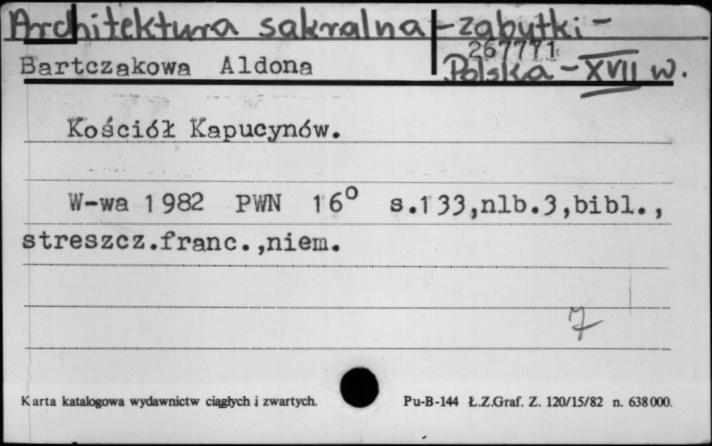 Architektura sakralna - zabytki -
267771
Bartczakowa Aldona
Polska - XVII w.
Kościół Kapucynów.
W-wa 1982 PWN 16° s.133,nlb.3,bibl.,
streszcz.franc.,niem.
7
Karta katalogowa wydawnictw ciągłych i zwartych.
Pu-B-144 Ł.Z.Graf. Z. 120/15/82 n. 638000.